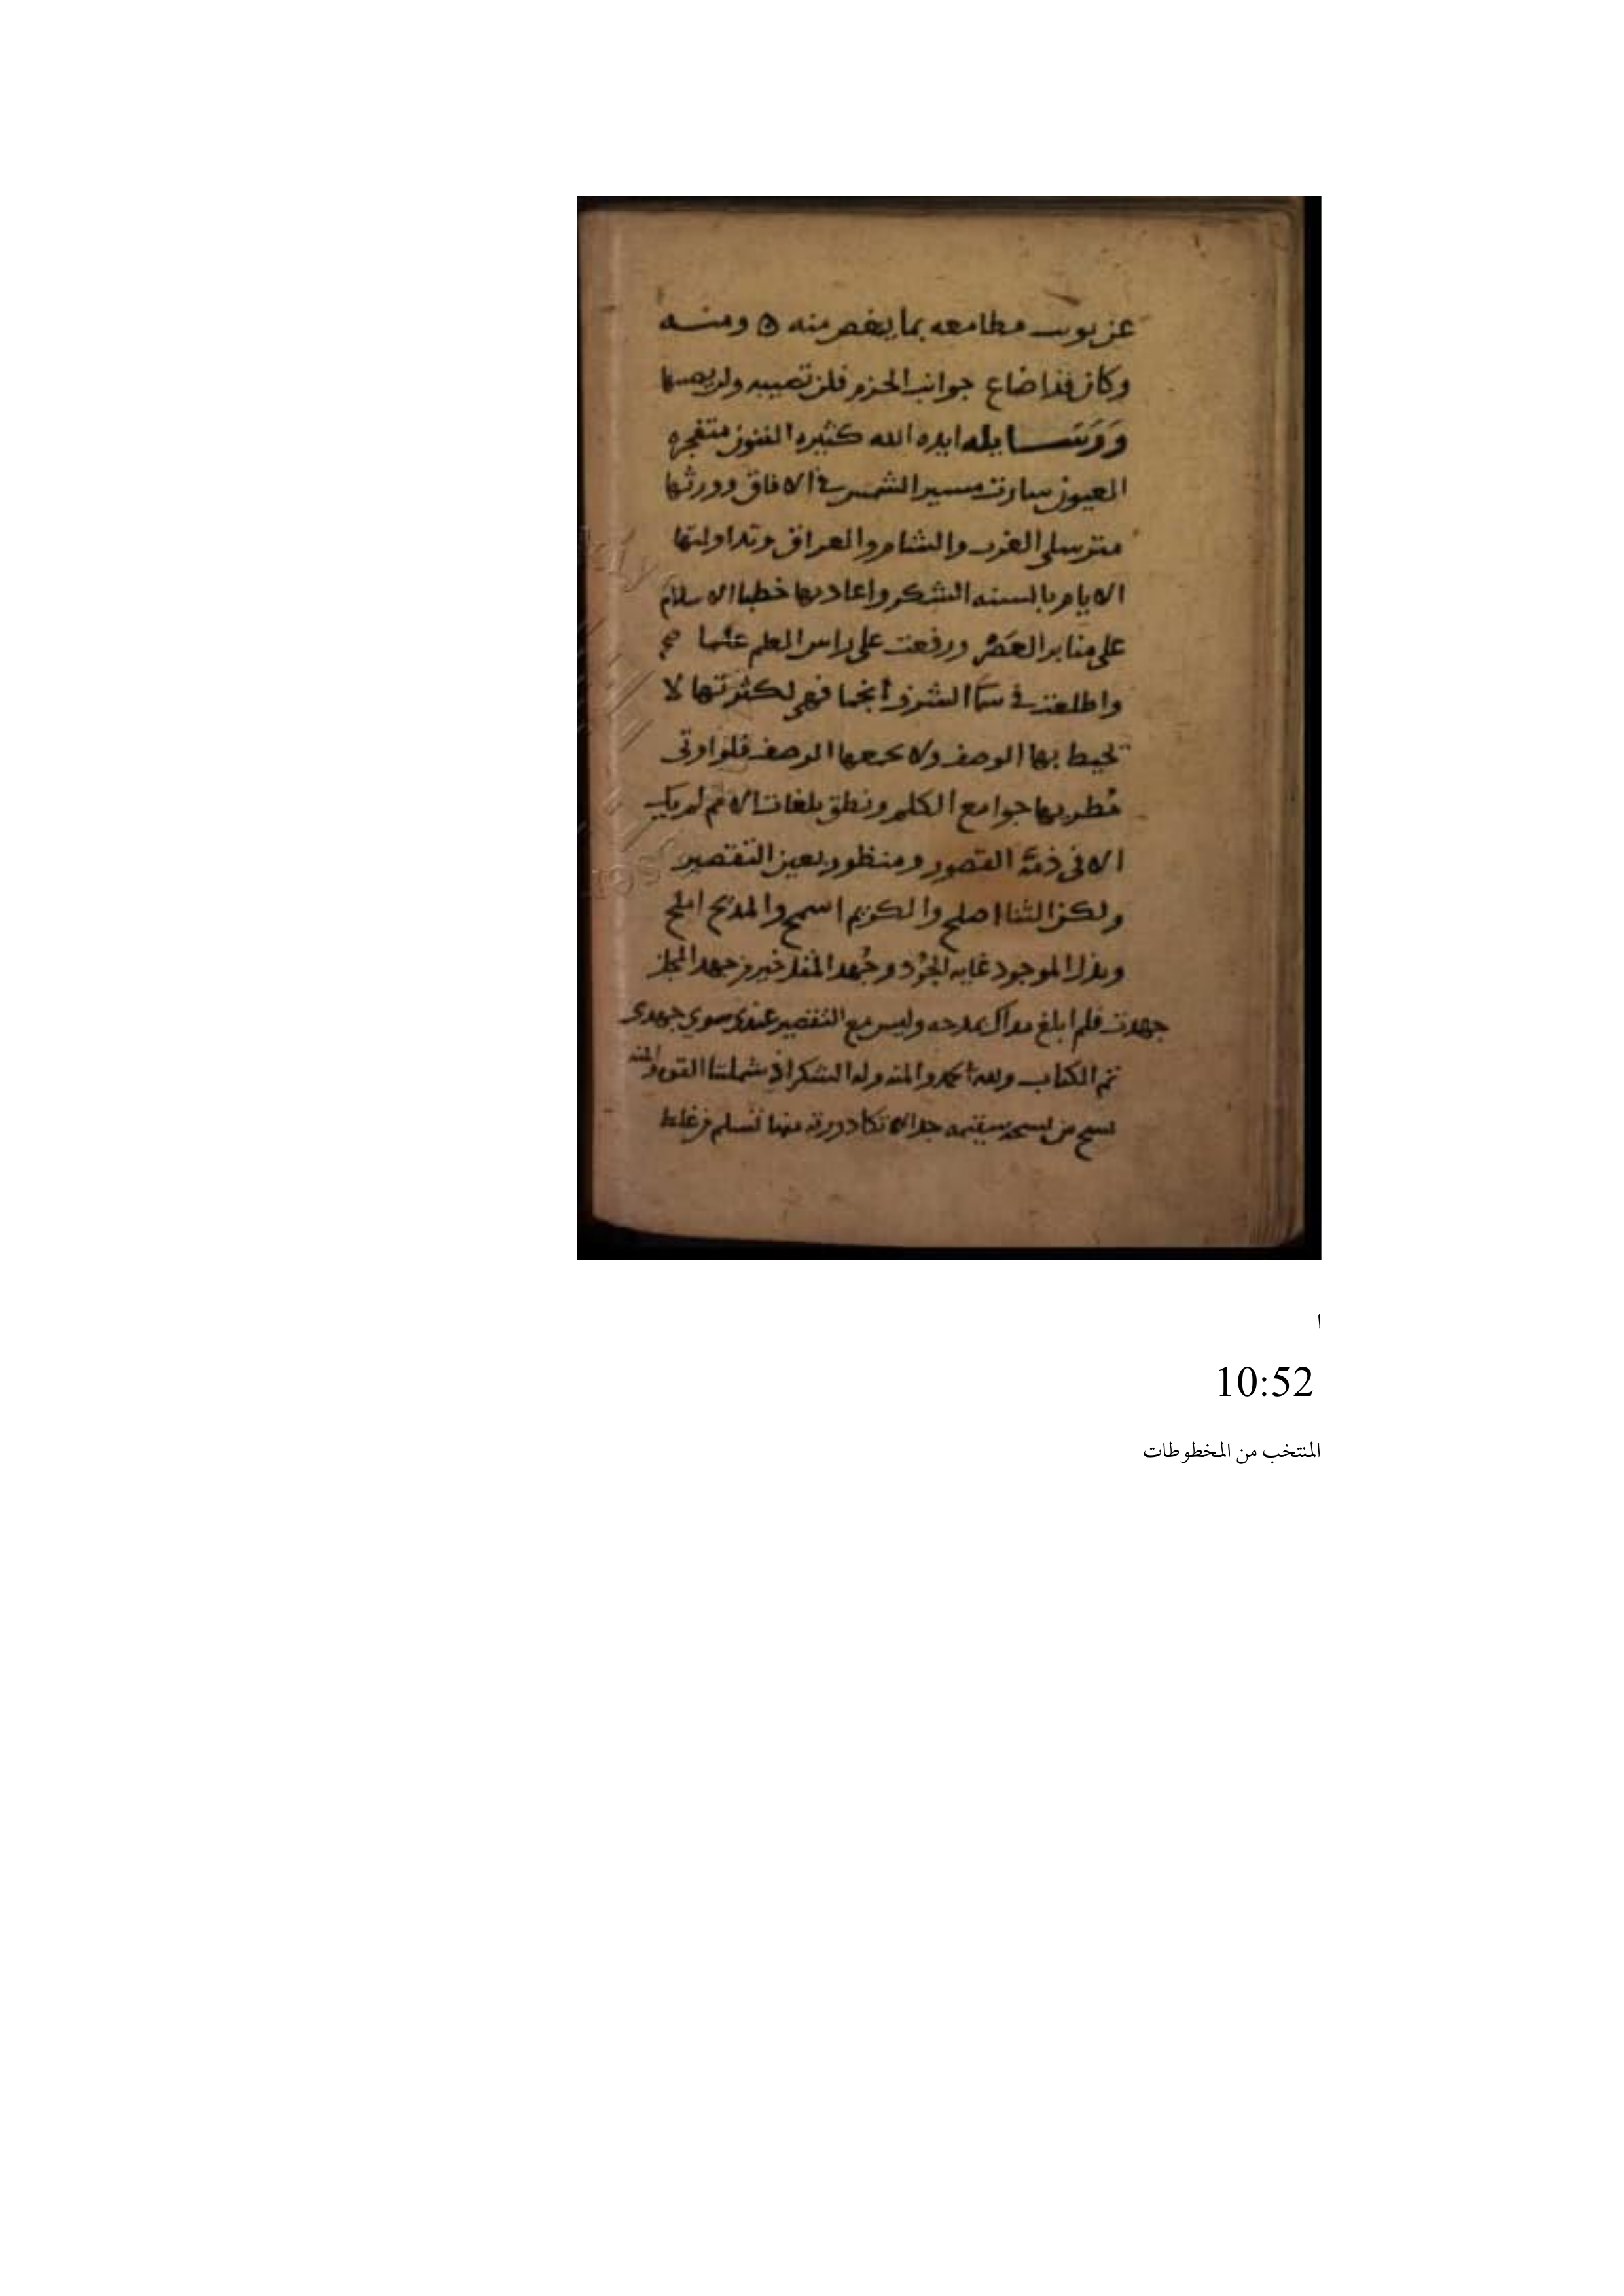 مطامعه بما يغص منه ه ومنه
وكان قد اضاع جوانب الحزم فلن تصيبه ولم
ورسايله ايده الله كثيره الفنون متفجره
العيون سارت مسير الشمس في الافاق وورثها
مترسلي الغرب والشام والعراق وتداولتها
الايام بالسنه الشكر واعاد بها خطبا الاسلام
على منابر العصر ورفعت على راس العلم علما صح
واطلعت في سما الشرف انجما فهي لكثرتها لا
تحيط بها الوصف ولا يجمعها الوصف فلو اوتى
بها جوامع الكلم ونطق بلغات الامم لم يك
الا في ذمة القصور ومنظور بعين التقصير
ولكن الثنا اصلح والكريم اسمح والمديح املح
وبذل الموجود غايه الجود وجهد المقل خير من جهد المخل
جهدت فلم ابلغ مداك بمدحه وليس مع التقصير عندي سوى جهدي
تم الكتاب ولله الحمد والمنه وله الشكر اذ شملتنا
نسخ من نسخه سقيمه جدا لا تكاد ورقه منها تسلم من غلط
ا
10:52
المنتخب من المخطوطات